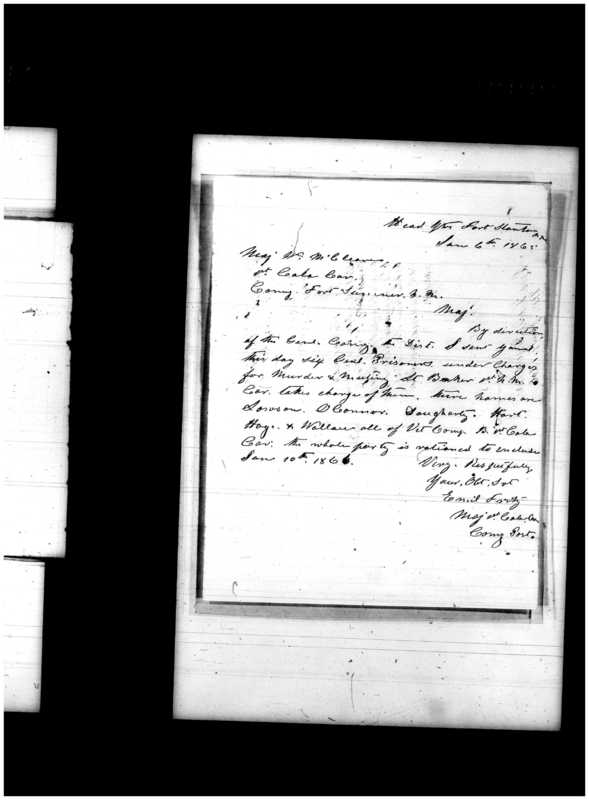 Head Qrs Fort Stanton N.M.
Jan 6th 1866
Maj Wm McCleave
1st Cala Cav.
Comg. Fort Sumner N.M.
Maj.
By direction
of the Genl. Comg. the Dist. I send you
this day six Cal. Prisoners under Charges
for Murder & Mutiny. Lt Baker 1st N.M.
Cav. takes charge of them. there names are
Lawson. O'Connor. Daugherty. Hart.
Hay. & Wallace all of Vet Comp. B. 1st Cala
Cav. the whole party is rationed to include
Jan 10th 1866. Very. Respifully
Your. Obt. Svt
Emil Fritz
Maj 1st Cala. Cav
Comg Post.